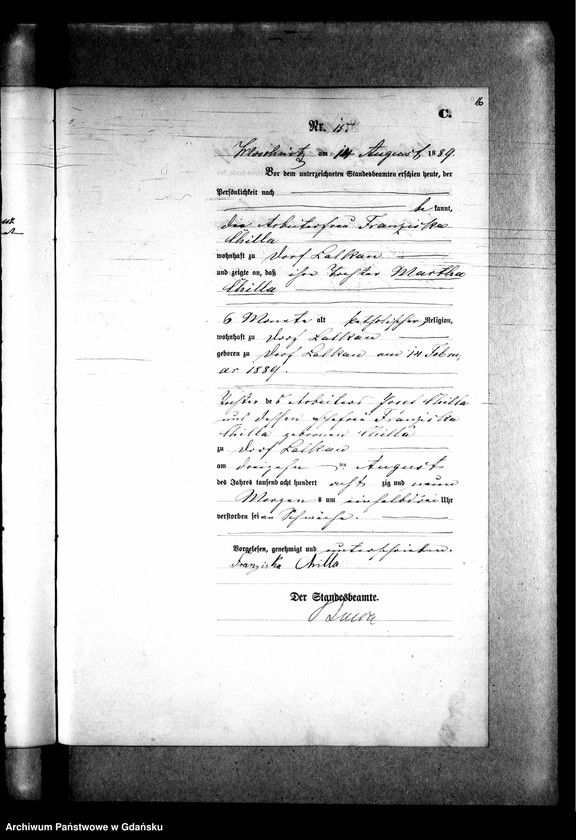 16
C.
Nr. 15
am 14 August 1889.
Vor dem unterzeichneten Standesbeamten erschien heute, der
Persönlichkeit nach
be kannt,
die Arbeiterfrau Franziska
Chilla
wohnhaft zu Dorf Lalkau
und zeigte an, daß ihre Tochter Martha
Chilla
6 Monate alt katholischer Religion,
wohnhaft zu Dorf Lalkau
geboren zu Dorf Lalkau am 14 Febru
ar 1889.
Tochter des Arbeiters Chilla
und dessen Ehefrau Franziska
Chilla geborenen Chilla
zu Dorf Lalkau
am dreizehn ten August
des Jahres tausend acht hundert acht zig und neun
Morgen s um einhalb drei Uhr
verstorben sei an Schwäche.
Vorgelesen, genehmigt und unterschrieben.
Franziska Chilla
Der Standesbeamte.
Archiwum Państwowe w Gdańsku